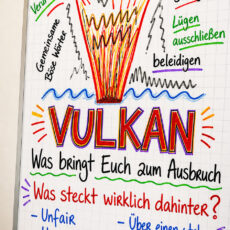 Lügen
ausschließen
Gemeinsame
Böse Wörter
beleidigen
VULKAN
Was bringt Euch zum Ausbruch
Was steckt wirklich dahinter?
- Unfair
- Über einen